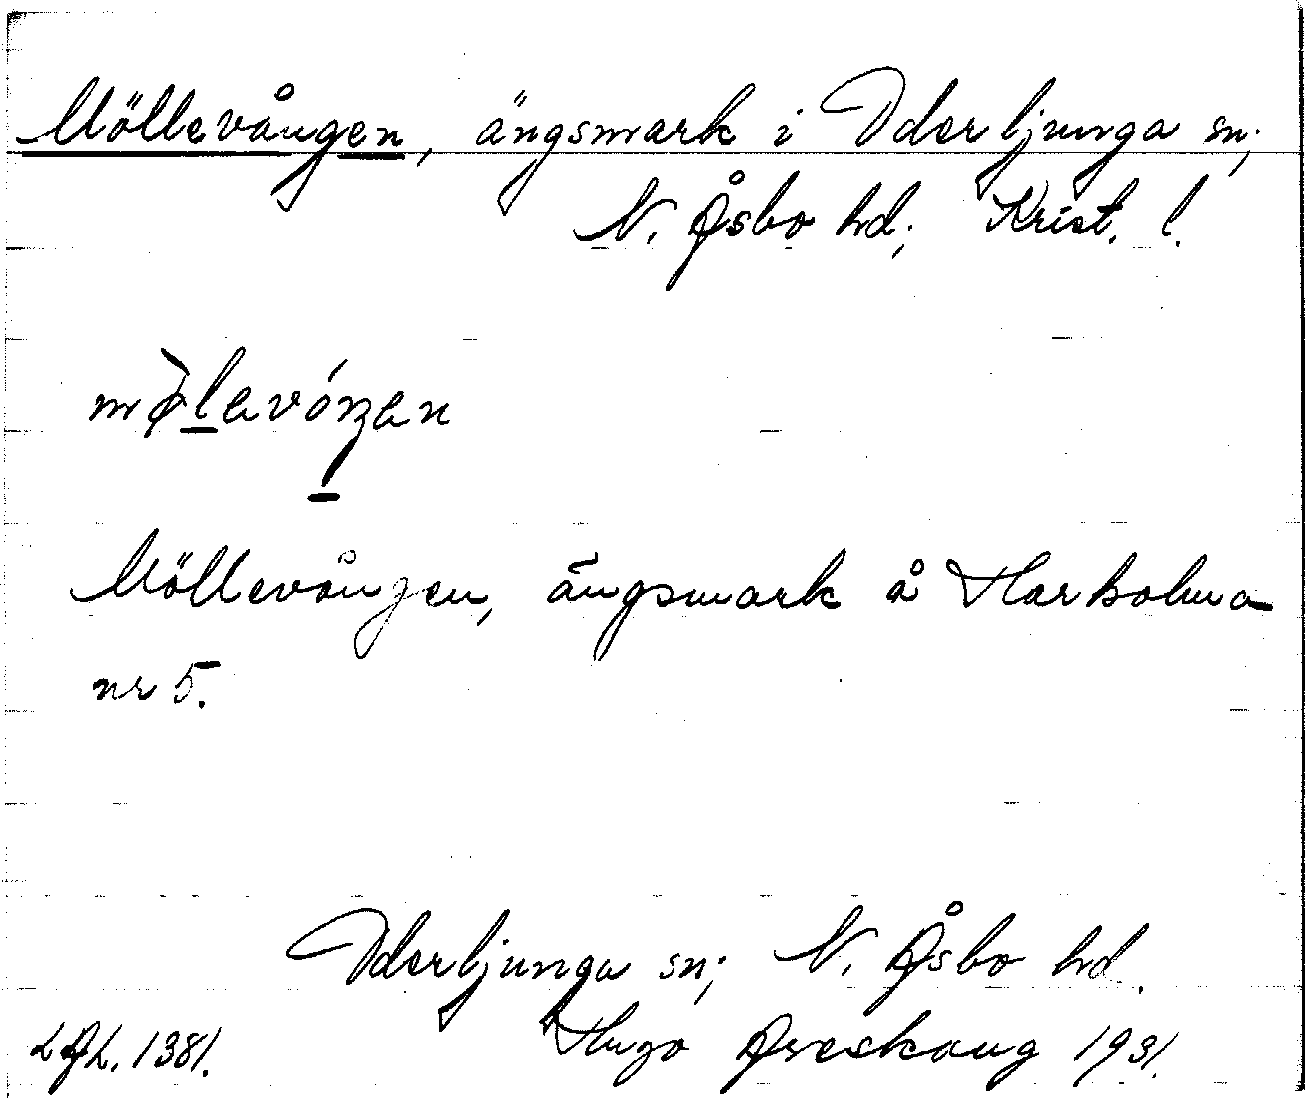 Möllevången, ängsmark i Oderljunga sn;
N. Åsbo hd; Krist. l.
Möllevången, ängsmark å Harholma
nr 5.
Oderljunga sn; N. Åsbo hd.
LAL. 1381. Hugo Areskoug 1931.